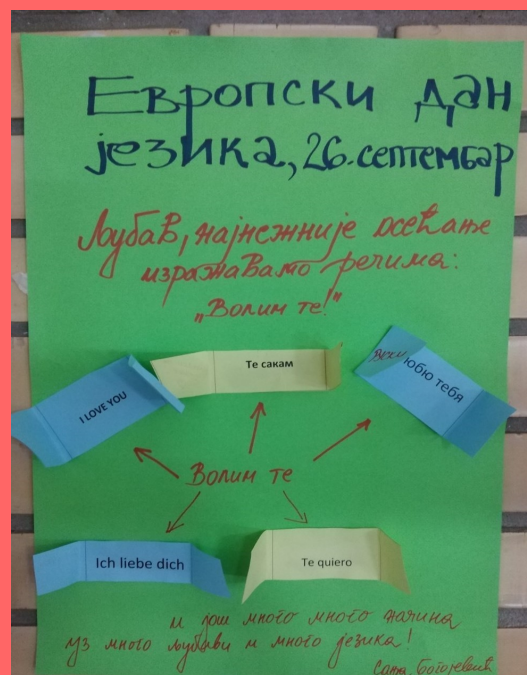 Европски дан
језика, 26. септембар
Љубав, најнежније осећање
изражавамо речима:
„Волим те!"
I LOVE YOU
Те сакам
юбю тебя
Волим те
Ich liebe dich
Te quiero
и још много много начина
уз много љубави и много језика!
Сања Богојевић